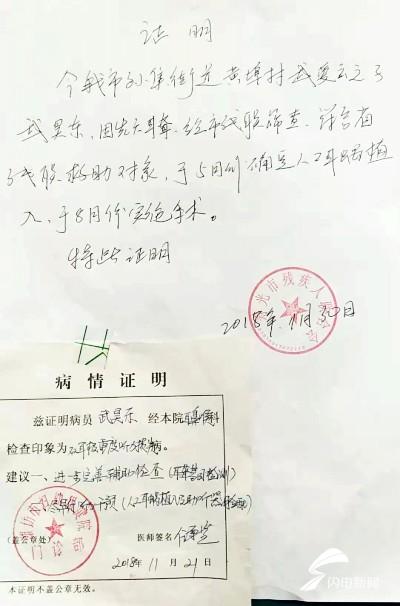 证明
今我市孙集街道黄埠村武爱云之子
武昊东,因先天耳聋,经市残联筛查,
了残联救助对象,于5月份确定人工耳蜗植
入,于8月份实施手术。
特此证明
光市残疾人联合会
2018年 月30日
病情证明
兹证明病员 武昊东 经本院 科
检查印象为 双耳极重度听力损失。
建议一、进一步完善辅助检查(
(人工耳蜗植入
(盖公章处)
医师签名
2018年11月21日
本证明不盖公章无效。
闪电新闻